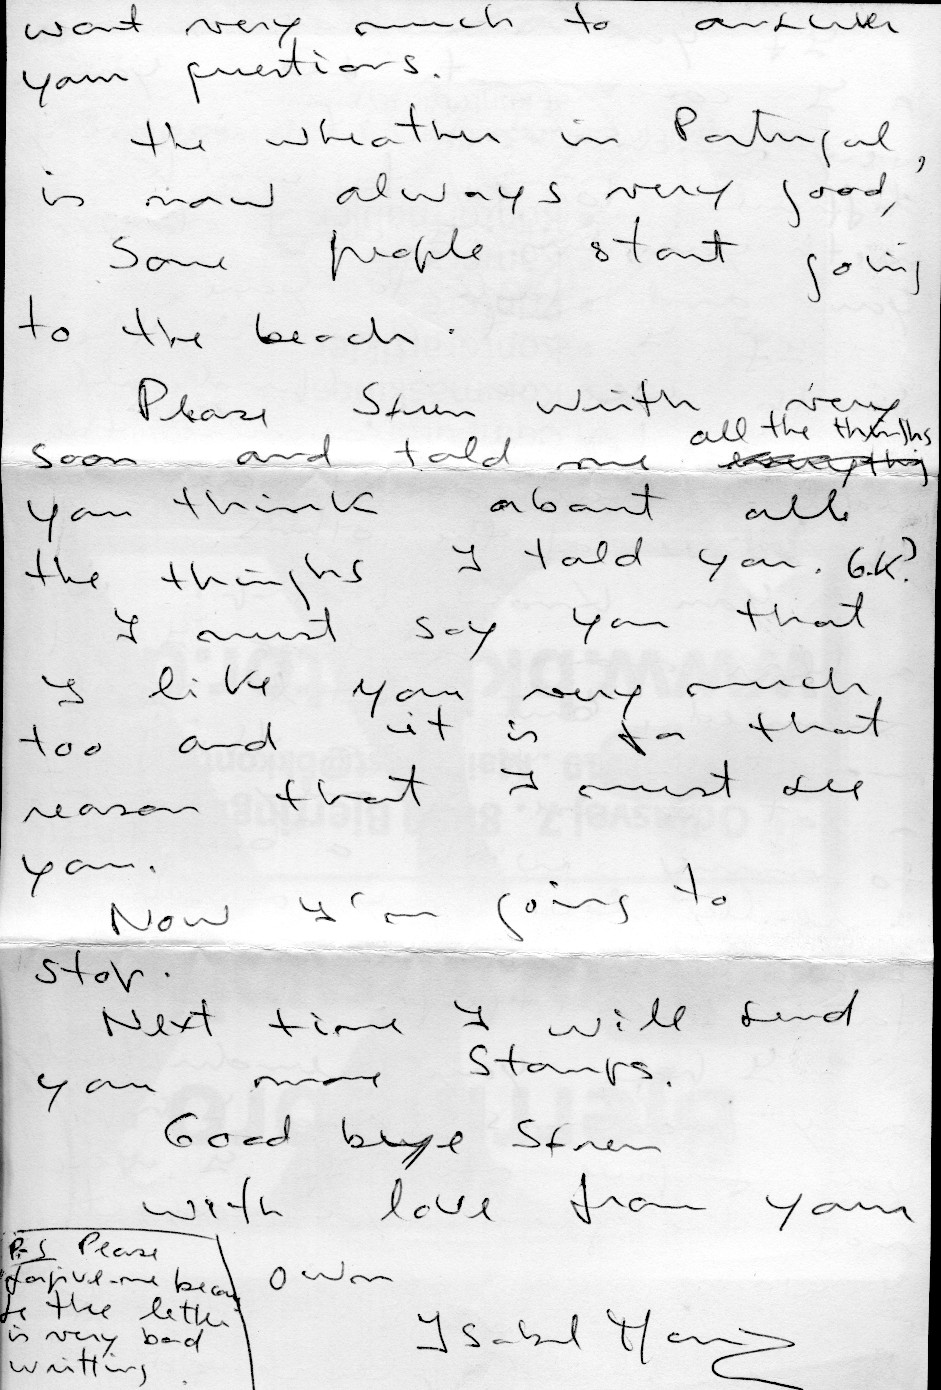 want very much to answer
your questions.
the wheather in Portugal,
is now always very good,
Some people start going
to the beach.
Please Stren writh very
all the thinghs
soon and told me
you think about all
the thinghs I told you. O.K?
I must say you that
I like you very much
too and it is for that
reason that I must see
you.
Now I'm going to
stop.
Next time I will send
you more Stamps.
Good bye Stren
with love from your
own
Isabel
P.S Please
forgive-me becau
se the letter
is very bad
writting.